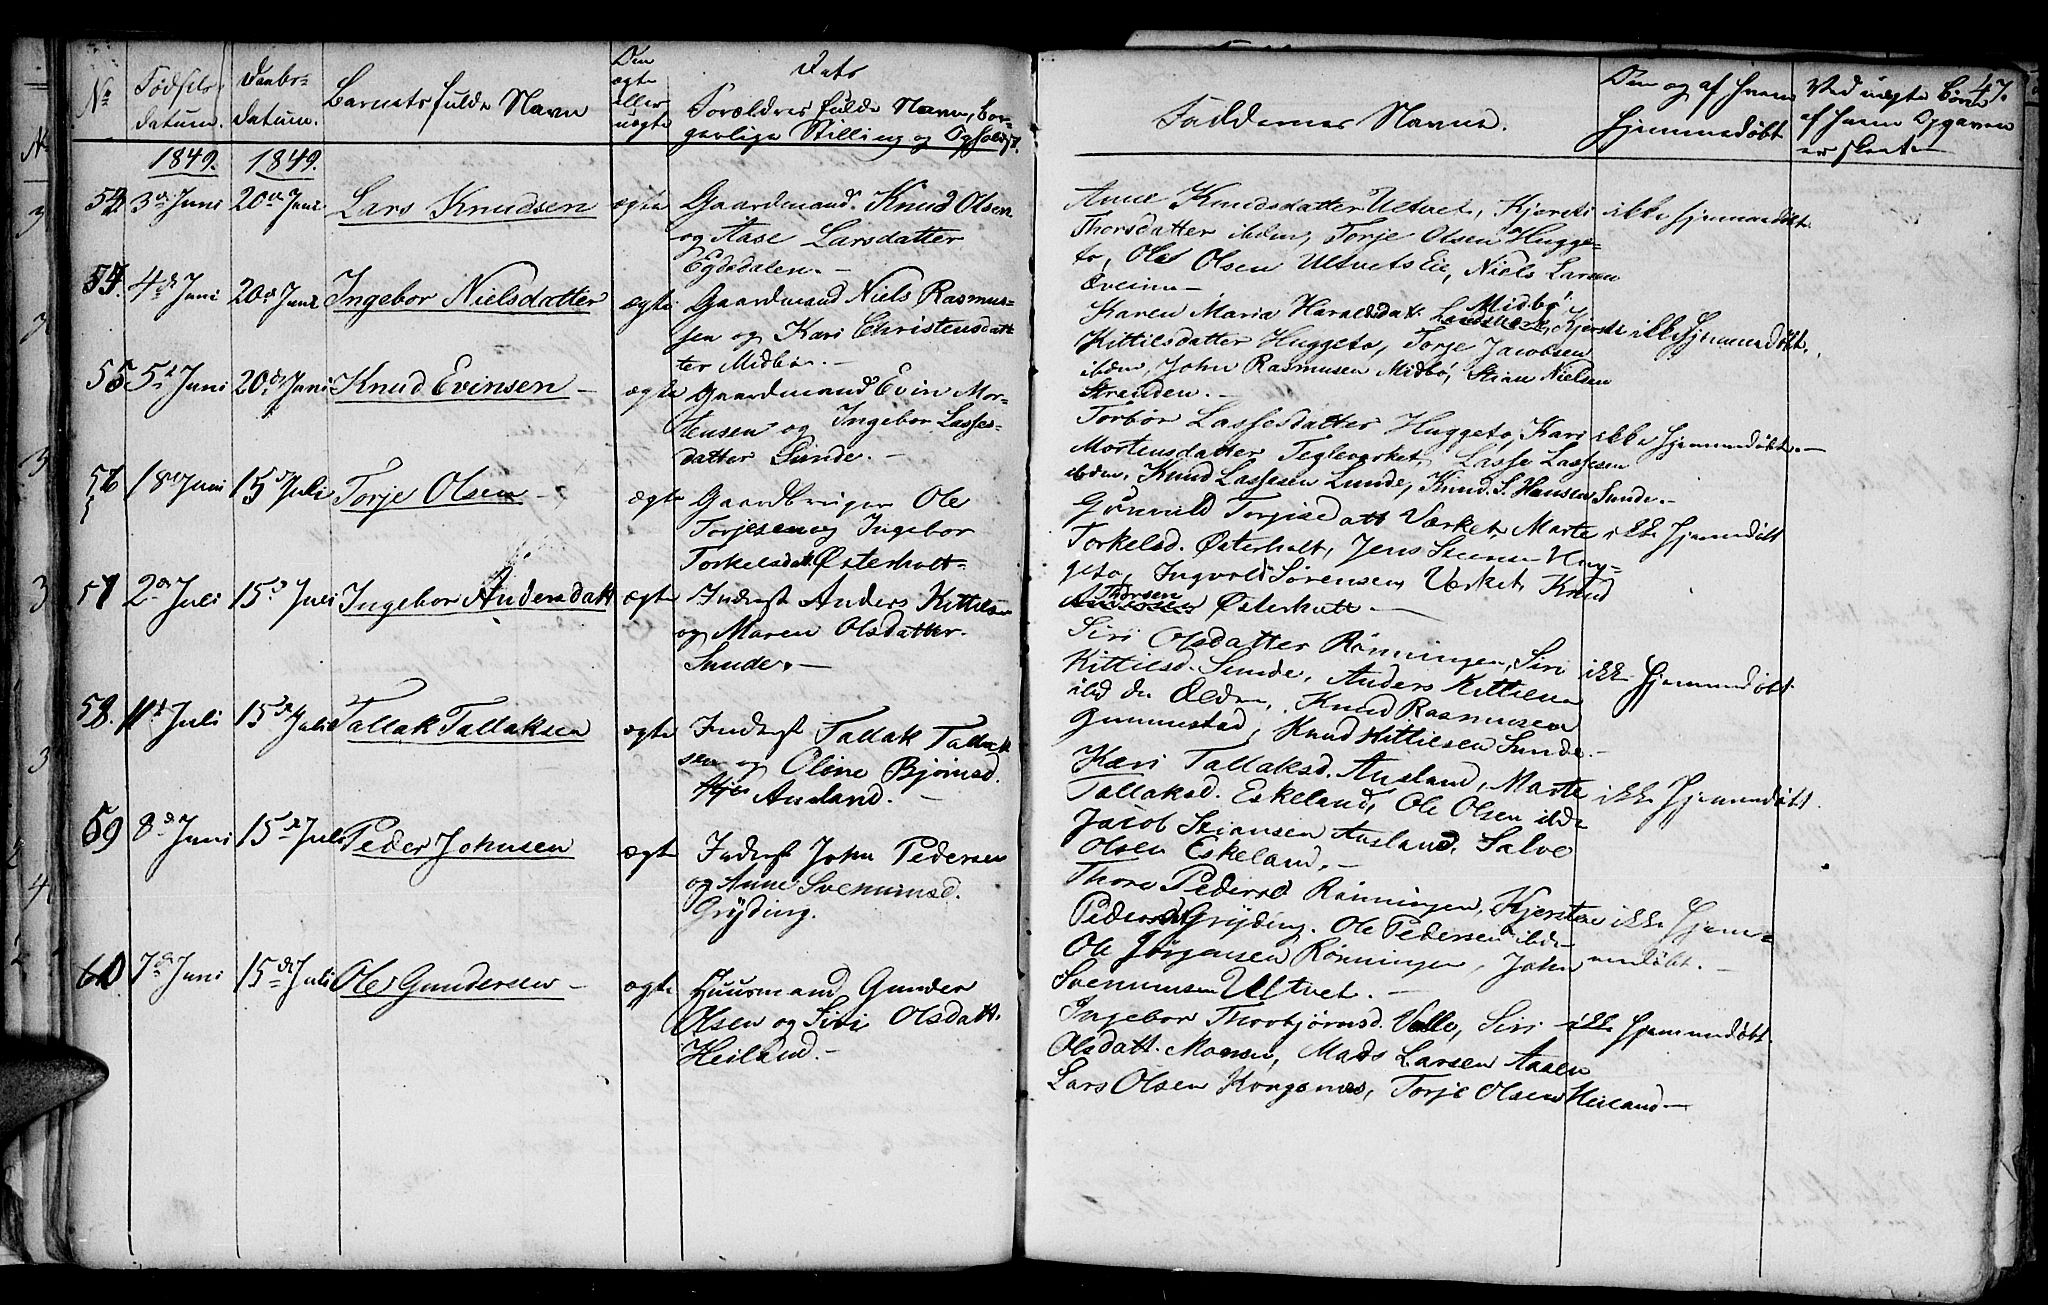 No
Fødsels-
datum.
Daabs-
datum.
Barnets fulde Navn
Om
ægte
eller
uægte
Dets
Forældres fulde Navn, bor-
gerlige Stilling og Ophold
Faddernes Navne.
Om og af hvem
hjemmedøbt
Ved uægte Børn
af hvem Opgaven
er skeet
47.
1849. 1849.
53 3de Juni 20de Juni Lars Knudsen ægte Gaardmand Knud Olsen
og Aase Larsdatter
Egdedalen.-
Anne Knudsdatter Ultvet, Kjersti ikke hjemmedøbt.
Thorsdatter ibdm, Torje Olsen Hugge-
to, Ole Olsen Ultvets Eie, Niels Larsen
54. 4de Juni 20de Juni Ingebor Nielsdatter ægte Gaardmand Niels Rasmus-
sen og Kari Christensdatt
ter Midbø.-
Karen Maria Haraldsdatt Midbø, Kjersti ikke hjemmedøbt.
Kittilsdatter Huggeto, Torje Jacobsen
ibdm, John Rasmusen Midbø, Stian Nielsen
Strenden.-
55 5te Juni 20de Juni Knud Evinsen - ægte Gaardmand Evin Mor-
tensen og Ingebor Lasses-
datter Sunde.-
Torbør Lassesdatter Huggeto, Kari ikke hjemmedøbt.-
Mortensdatter Tegleverket, Lasse Lassesen
ibdm, Knud Lassesen Lunde, Knud S. Hansen Sunde.-
56 18de Juni 15de Juli Torje Olsen - ægte Gaardbruger Ole
Torjesen og Ingebor
Torkelsdatt Østerholt-
Gunvild Torjusdatt Værket, Marte ikke hjemmedøbt
Torkelsd. Østerholt, Jens Hug-
geto, Ingvold Sørensen Værket, Knud
Thorsen
Østerholt -
57 2de Juli 15de Juli Ingebor Andersdatt ægte Inderst Anders Kittilsen
og Maren Olsdatter.
Sunde.-
Siri Olsdatter Rønningen, Siri ikke hjemmedøbt
Kittilsd. Sunde, Anders Kittilsen
ibd den Ældre, Knud Rasmusen
Gunnestad, Knud Kittilsen Sunde.-
58. 11te Juli 15de Juli Tallak Tallaksen ægte Inderst Tallak Tallak
sen og Oline Bjørnsd.
Ausland.-
Kari Tallaksd. Ausland, Marte ikke hjemmedøbt.
Tallaksd. Eskeland, Ole Olsen ibd
Jacob Stiansen Ausland, Salve
Olsen Eskeland.-
59 8de Juni 15de Juli Peder Johnsen ægte Inderst John Pedersen
og Anne Svenumsd.
Gryding.
Thore Pedersd Rønningen, Kjersten ikke hjem-
Pedersdt Gryding. Ole Pedersen ibd- medøbt.-
Ole Jørgensen Rønningen, John
Svenumsen Ultvet.-
60 7de Juni 15de Juli Ole Gundersen - ægte Huusmand Gunder
Olsen og Siri Olsdatt.
Heiland.-
Ingebor Thorbjørnsd. Valle, Siri ikke hjemmedøbt.
Olsdatt. Moen, Mads Larsen Aasen
Lars Olsen Kongsnes, Torje Olsen Heiland -